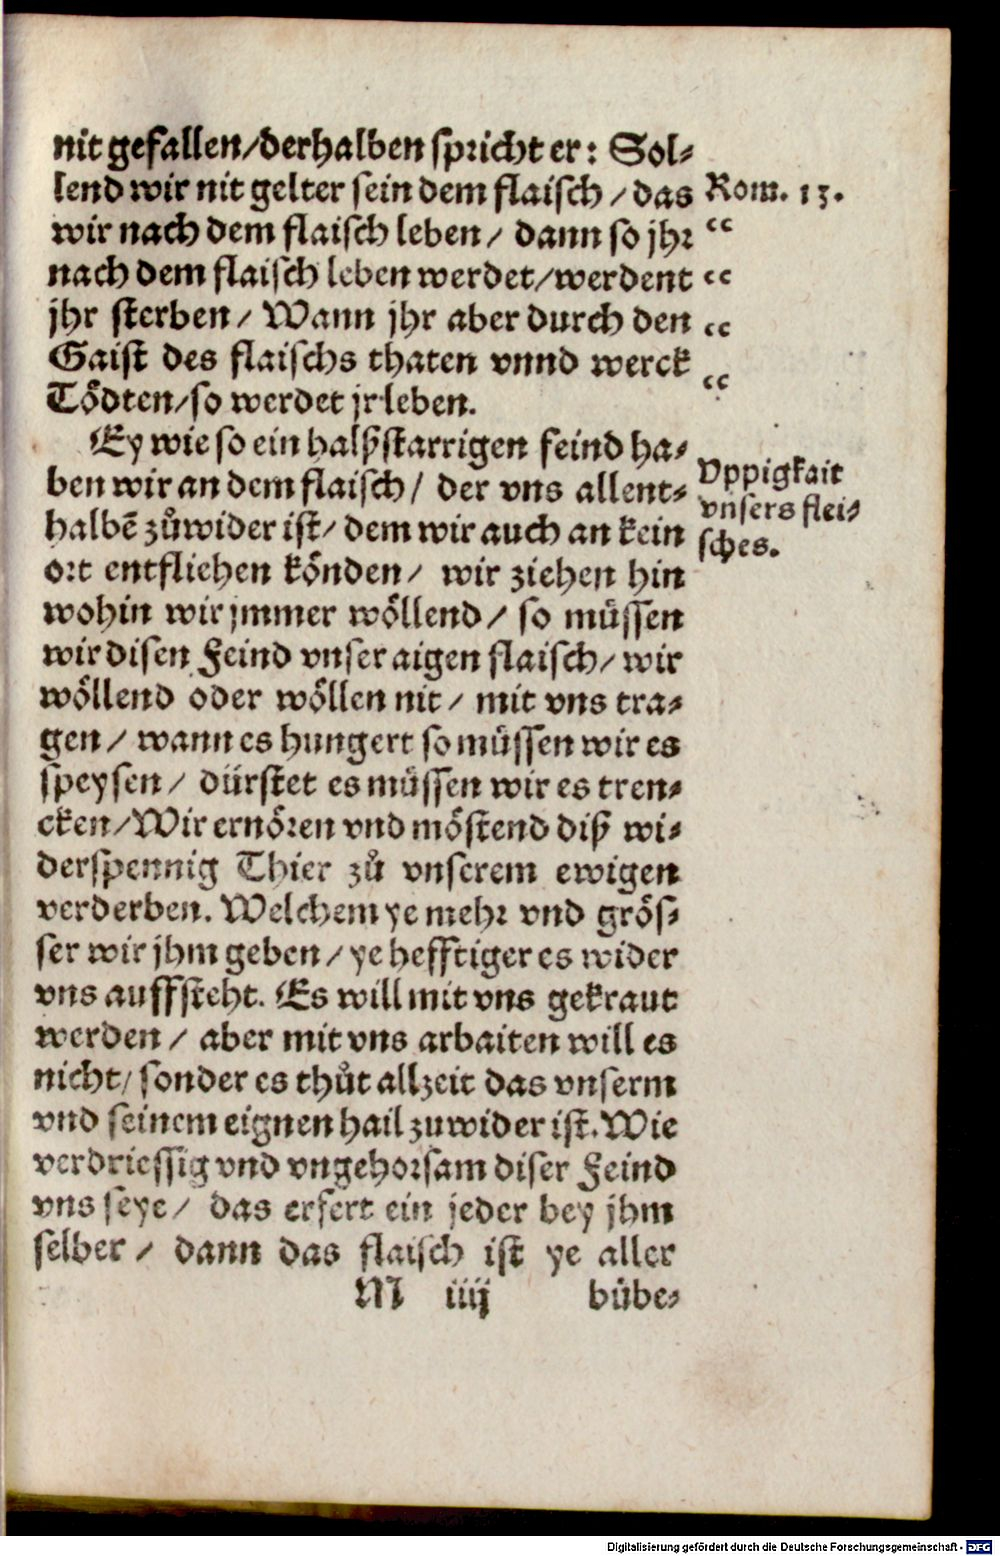 nit gefallen/derhalben spricht er: Sol⸗
lend wir nit gelter sein dem flaisch / das
wir nach dem flaisch leben / dann so jhr
nach dem flaisch leben werdet/werdent
jhr sterben / Wann jhr aber durch den
Gaist des flaischs thaten vnnd werck
Tödten/so werdet jr leben.
Rom. 13.
“
“
“
“
Ey wie so ein halßstarrigen feind ha⸗
ben wir an dem flaisch / der vns allent⸗
halbẽ zůwider ist / dem wir auch an kein
ort entfliehen könden / wir ziehen hin
wohin wir jmmer wöllend / so müssen
wir disen Feind vnser aigen flaisch / wir
wöllend oder wöllen nit / mit vns tra⸗
gen / wann es hungert so müssen wir es
speysen / dürstet es müssen wir es tren⸗
cken/Wir ernören vnd möstend diß wi⸗
derspennig Thier zů vnserem ewigen
verderben. Welchem ye mehr vnd grös⸗
ser wir jhm geben / ye hefftiger es wider
vns auffsteht. Es will mit vns gekraut
werden / aber mit vns arbaiten will es
nicht / sonder es thůt allzeit das vnserm
vnd seinem eignen hail zuwider ist. Wie
verdriessig vnd vngehorsam diser Feind
vns seye / das erfert ein jeder bey jhm
selber / dann das flaisch ist ye aller
Vppigkait
vnsers flei⸗
sches.
M iiij bübe⸗
Digitalisierung gefördert durch die Deutsche Forschungsgemeinschaft - DFG